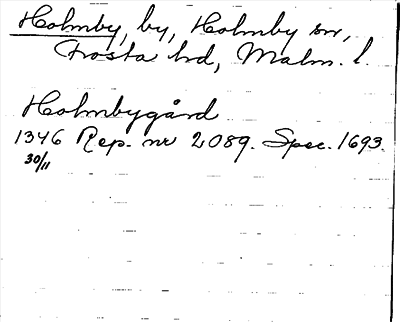 Holmby, by, Holmby sn,
Frosta hd, Malm. l.
Holmbygård
1346 Rep. nr 2089. Spec. 1693.
30/11